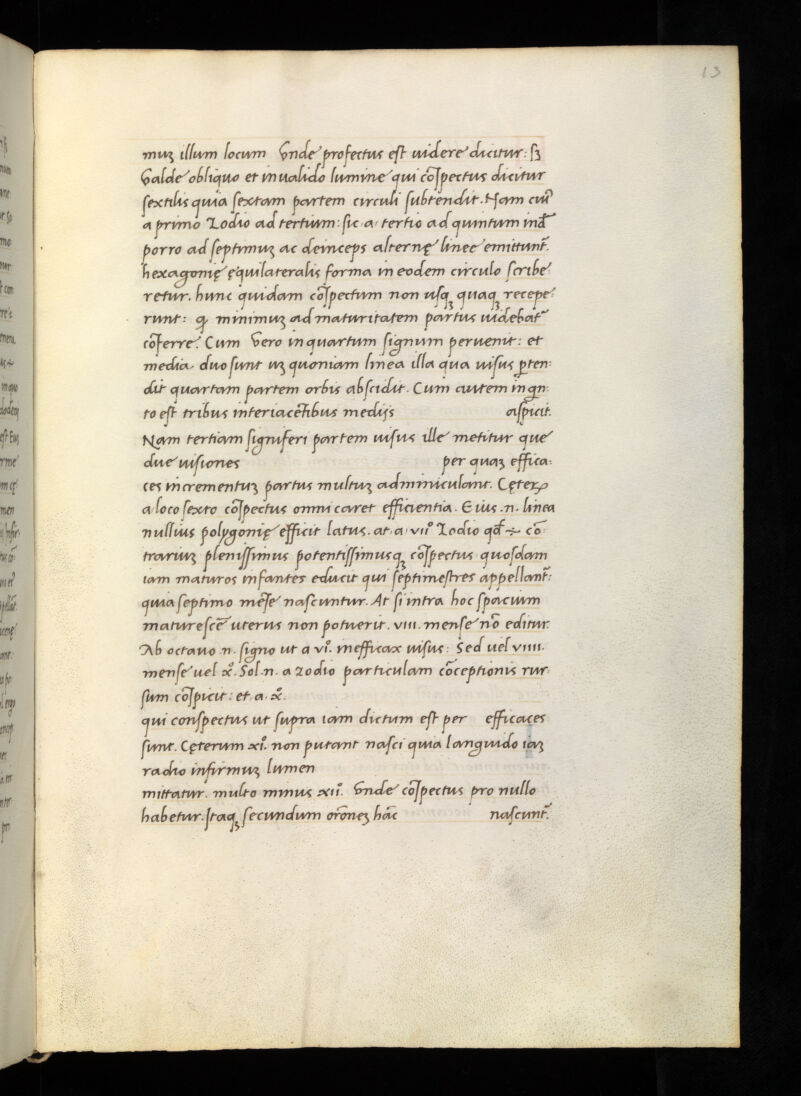 13
muꝫ illum locum Vnde profectus est uidere dicitur: sꝫ
Valde obliquo et inualido lumine qui cōspectus dicitur
sextilis quia sextam partem circuli subtendit. Nam cuꝫ
a primo Zodio ad tertium: sic a tertio ad quintum ind̄
porro ad septimuꝫ ac deinceps alternę linee emittunt̄.
hexagonię ęquilateralis forma in eodem circulo scribe
retur. hunc quidam cōspectum non usqꝫ quaqꝫ recepe:
runt: ꝙ minimuꝫ ad maturitatem partus uidebat̄
cōferre. Cum Vero in quartum signum peruenit: et
media duo sunt uꝫ quoniam linea illa qua uisus ꝑten:
dit quartam partem orbis abscidit. Cum autem in qn̄
to est tribus interiacētibus medijs aspicit.
Nam tertiam signiferi partem uisus ille metitur que
due uisiones per quaꝫ effica:
ces incrementuꝫ partus multuꝫ adminiculant. Cęteꝝ
a loco sexto cōspectus omni caret efficientia. Eius .n. linea
nullius polygonię efficit latus. at a vii° Zodio qd̄ ÷ cō
trariuꝫ plenissimus potentissimusqꝫ cōspectus quosdam
iam maturos infantes educit qui septimestres appellant̄:
quia septimo mēse nascuntur. At si intra hoc spacium
maturescē uterus non potuerit. viii. mense nō editur.
Ab octauo .n. signo ut a vi°. inefficax uisus: Sed uel viiii.
mense uel x°. Sol .n. a Zodio particulam cōceptionis rur
sum cōspicit: et a x°.
qui conspectus ut supra iam dictum est per efficaces
sunt. Cęterum xi°. non putant nasci quia languido iaꝫ
radio infirmuꝫ lumen
mittatur. multo minus xii°. Vnde cōspectus pro nullo
habetur. Itaqꝫ secundum orōneꝫ hāc nascunt̄.